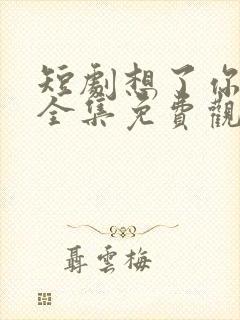 短劇想了你
全集免費觀
聶雲梅